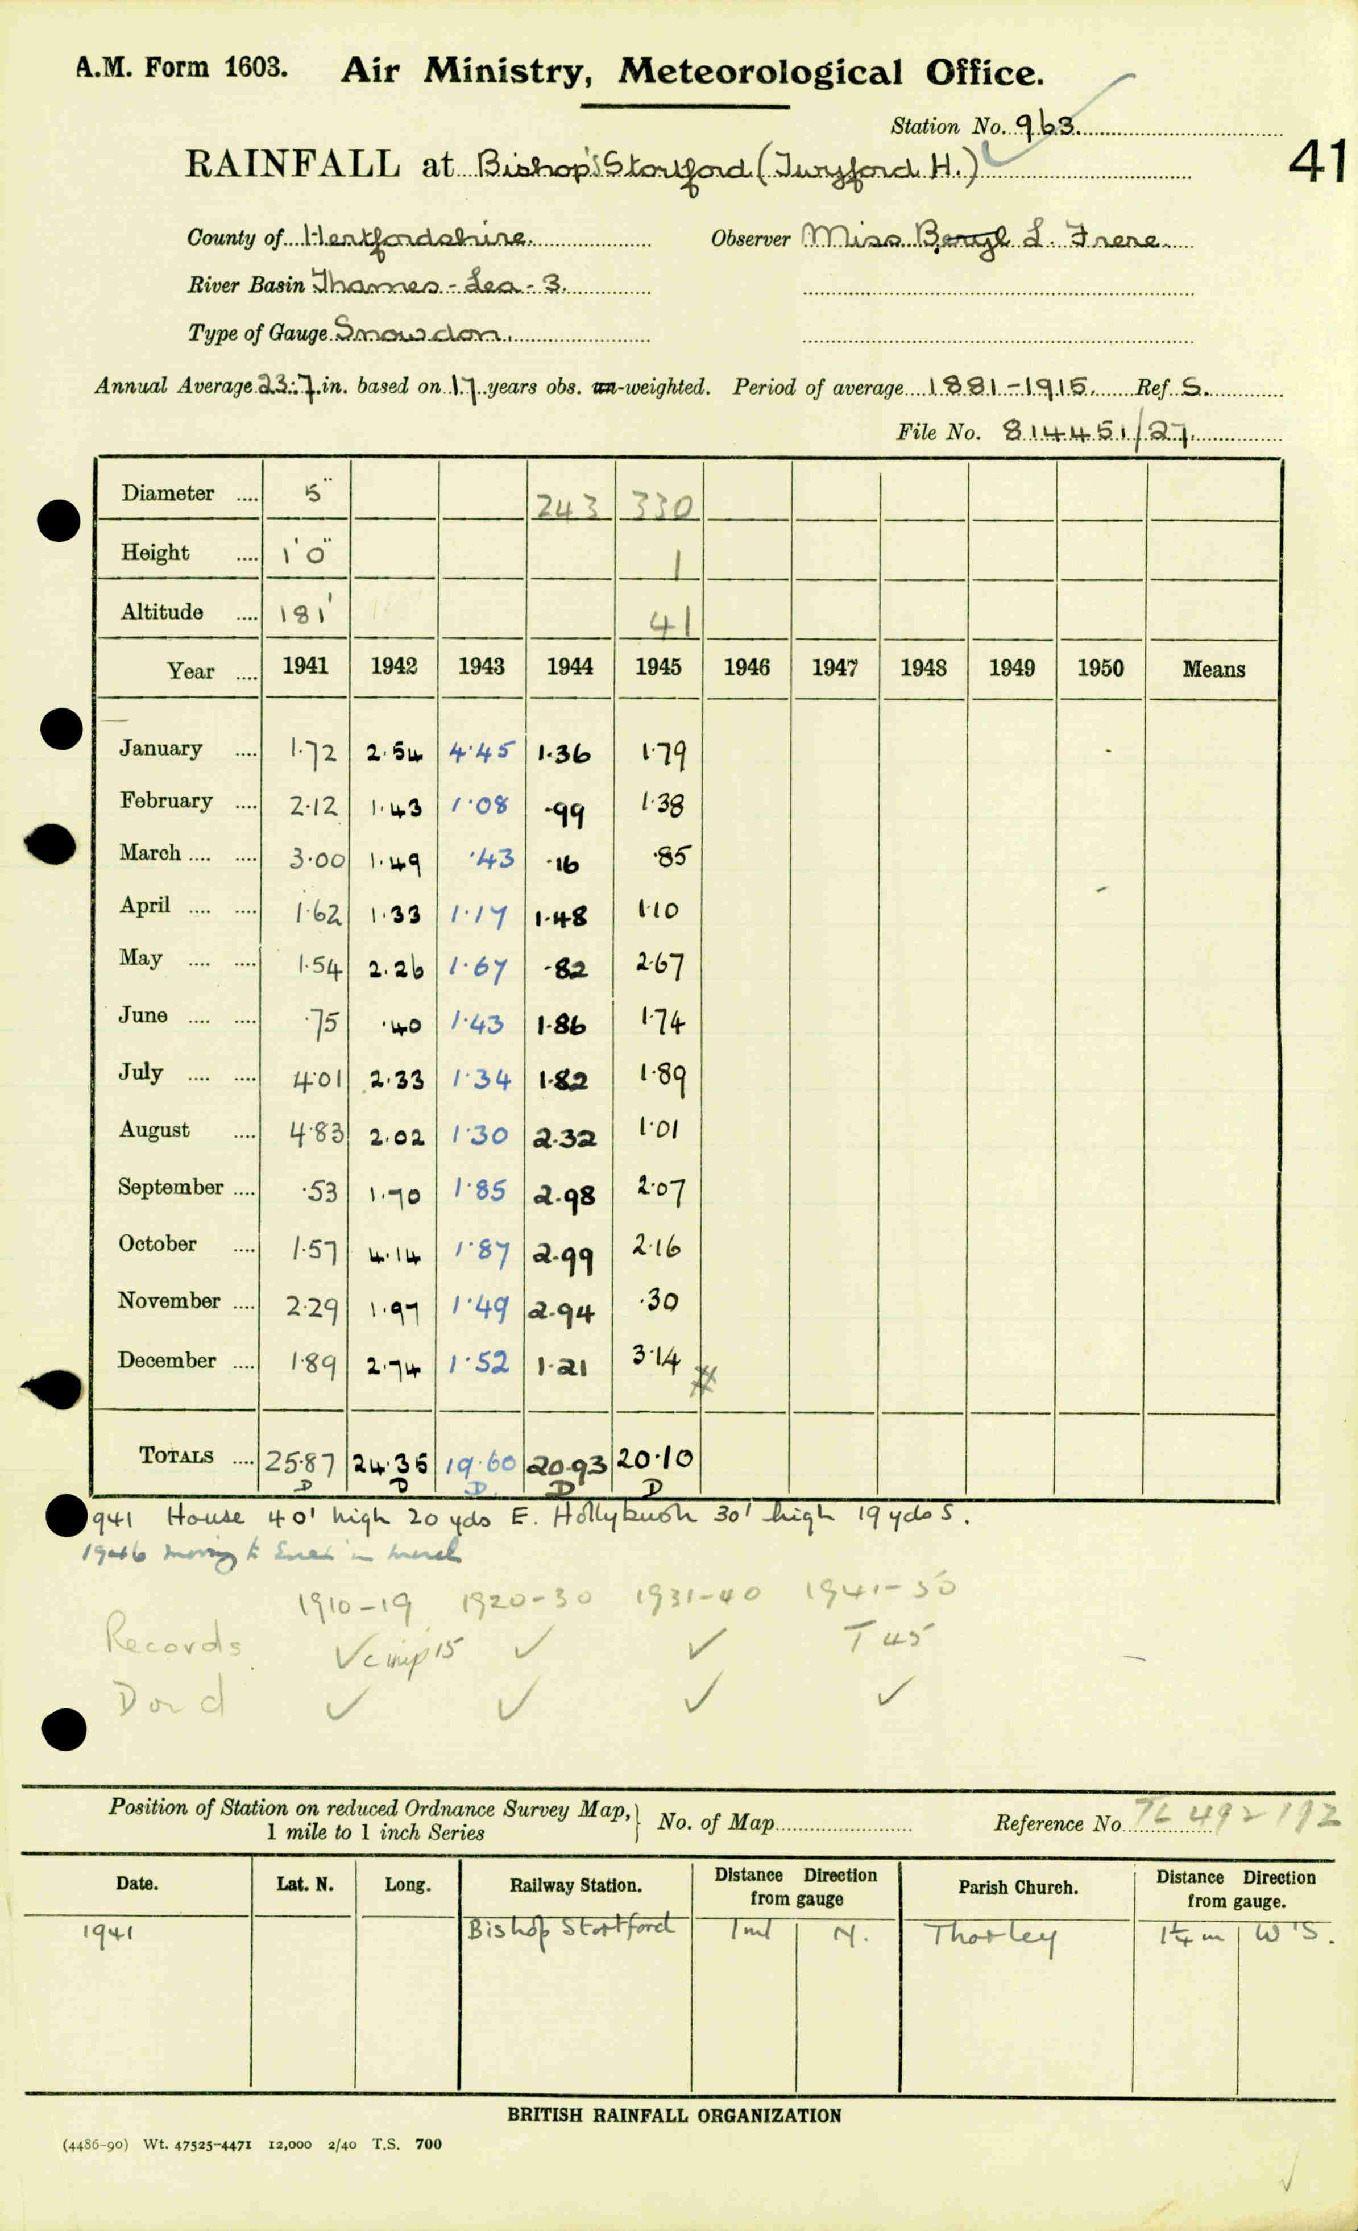 A.M. Form 1603. Air Ministry, Meteorological Office.
Station No. 963.
41
RAINFALL at Bishop's Stortford (Twyford H.)
County of Hertfordshire. Observer Miss Beryl L. Frere.
River Basin Thames - Lea - 3.
Type of Gauge Snowdon.
Annual Average 23.7 in. based on 17 years obs. un-weighted. Period of average 1881-1915. Ref S.
File No. 814451/27.
Diameter .... 5" 243 330
Height .... 1' 0" 1
Altitude .... 181' 41
Year .... 1941 1942 1943 1944 1945 1946 1947 1948 1949 1950 Means
January .... 1.72 2.54 4.45 1.36 1.79
February .... 2.12 1.43 1.08 .99 1.38
March .... .... 3.00 1.49 .43 .16 .85
April .... .... 1.62 1.33 1.17 1.48 1.10
May .... .... 1.54 2.26 1.67 .82 2.67
June .... .... .75 .40 1.43 1.86 1.74
July .... .... 4.01 2.33 1.34 1.82 1.89
August .... 4.83 2.02 1.30 2.32 1.01
September .... .53 1.70 1.85 2.98 2.07
October .... 1.57 4.14 1.87 2.99 2.16
November .... 2.29 1.97 1.49 2.94 .30
December .... 1.89 2.74 1.52 1.21 3.14
TOTALS .... 25.87 24.35 19.60 20.93 20.10
D D D. D D
1941 House 40' high 20 yds E. Hollybush 30' high 19 yds S.
1946 moving to in March
1910-19 1920-30 1931-40 1941-50
Records ✓ 15 ✓ ✓ T 45
D ✓ ✓ ✓ ✓
Position of Station on reduced Ordnance Survey Map, 1 mile to 1 inch Series } No. of Map Reference No. TL 492 192
Date. Lat. N. Long. Railway Station. Distance Direction from gauge Parish Church. Distance Direction from gauge.
1941 Bishop Stortford 1 ml N. Thorley 1¼ m W'S.
BRITISH RAINFALL ORGANIZATION
(4486-90) Wt. 47525-4471 12,000 2/40 T.S. 700